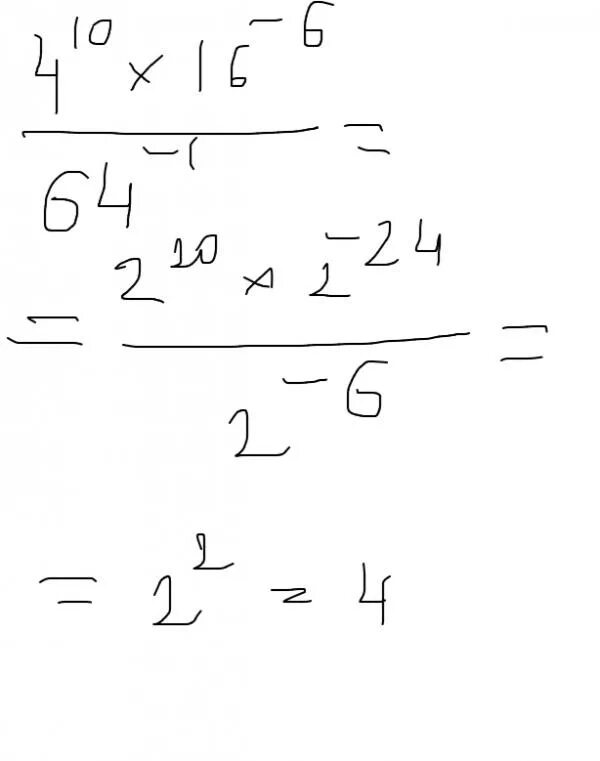 4^10 × 16^-6
64^-1 =
= 2^20 × 2^-24
2^-6 =
= 2^2 = 4